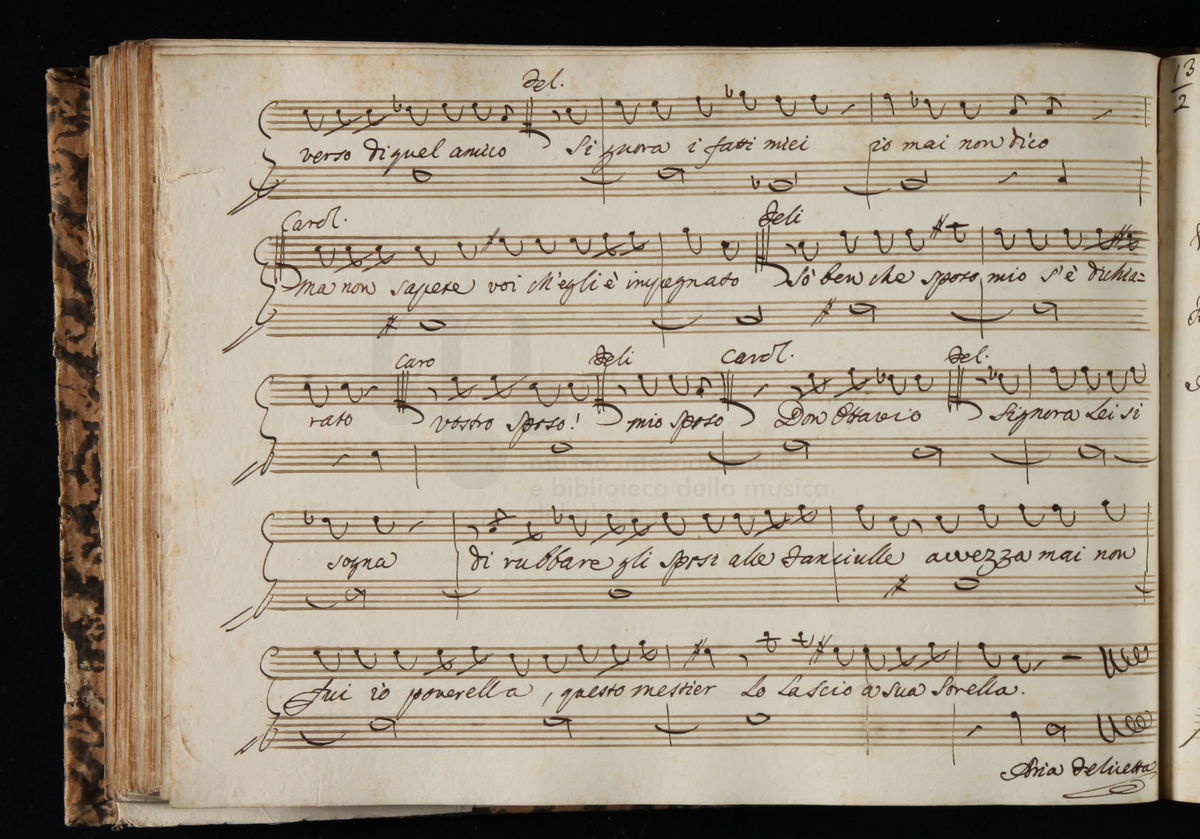 Del.
verso di quel amico Signora i fatti miei io mai non dico
13
2
Carol. Deli
ma non sapete voi ch'egli è impegnato Sò ben che sposo mio s'è dichia=
Caro Deli Carol. Del.
rato vostro sposo! mio sposo Don Ottavio Signora Lei si
museo internazionale
e biblioteca della musica
sogna di rubbare gli sposi alle Fanciulle avvezza mai non
fui io poverella, questo mestier Lo Lascio a sua Sorella.
Aria Delicetta